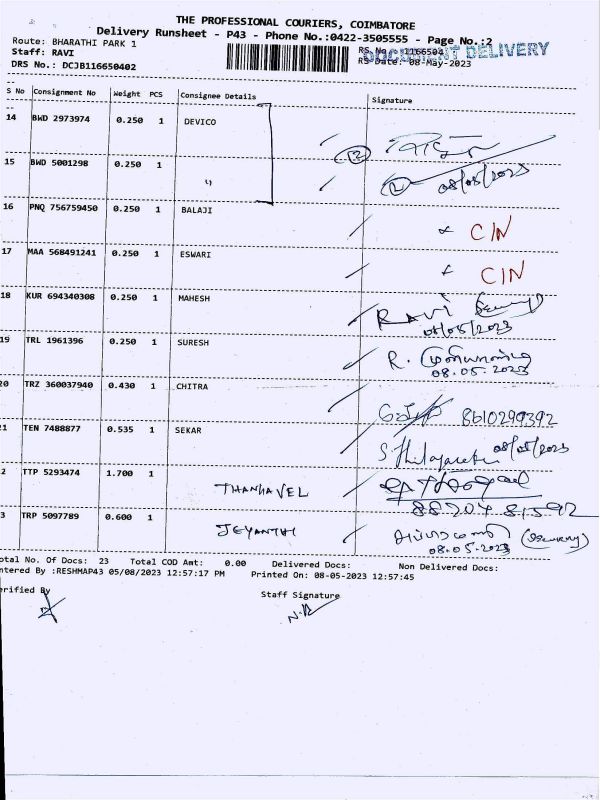 THE PROFESSIONAL COURIERS, COIMBATORE
Delivery Runsheet - P43 - Phone No.:0422-3505555 - Page No.:2
Route: BHARATHI PARK 1 RS No. :1166504
DOCUMENT DELIVERY
Staff: RAVI RS Date: 08-May-2023
DRS No.: DCJB116650402
S No Consignment No Weight PCS Consignee Details Signature
14 BWD 2973974 0.250 1 DEVICO
2
15 BWD 5001298 0.250 1 " 2 08/05/2023
16 PNQ 756759450 0.250 1 BALAJI C/N
17 MAA 568491241 0.250 1 ESWARI C/N
18 KUR 694340308 0.250 1 MAHESH RAVI
08/05/2023
19 TRL 1961396 0.250 1 SURESH R.
08.05.2023
20 TRZ 360037940 0.430 1 CHITRA 8610299392
21 TEN 7488877 0.535 1 SEKAR 08/05/2023
2 TTP 5293474 1.700 1 THANGAVEL
88704 81592
3 TRP 5097789 0.600 1 JEYANTHI
08.05.2023
otal No. Of Docs: 23 Total COD Amt: 0.00 Delivered Docs: Non Delivered Docs:
ntered By :RESHMAP43 05/08/2023 12:57:17 PM Printed On: 08-05-2023 12:57:45
erified By Staff Signature
N.R